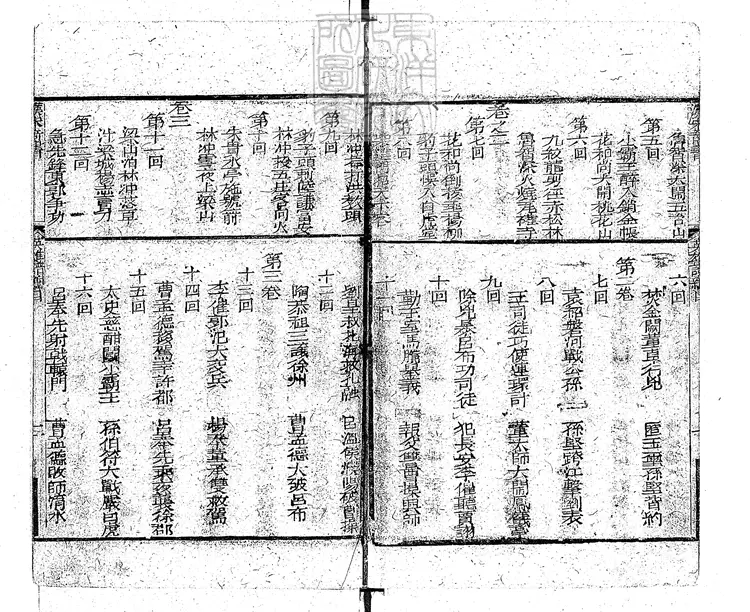 魯智深大鬧五臺山
第五回
小霸王醉入銷金帳
花和尚大鬧桃花山
第六回
九紋龍剪徑赤松林
魯智深火燒瓦罐寺
卷之二
第七回
花和尚倒拔垂楊柳
豹子頭誤入白虎堂
第八回
林冲棒打洪教頭
第九回
豹子頭刺陸謙富安
林冲投五庄客向火
第十回
朱貴水亭施號箭
林冲雪夜上梁山
卷三
第十一回
梁山泊林冲落草
汴梁城楊志賣刀
第十二回
急先鋒東郭争功
六回
焚金闕董卓行兇 匿玉璽孫堅背約
第二卷
七回
袁紹磐河戰公孫 孫堅跨江擊劉表
八回
王司徒巧使連環計 董太師大鬧鳳儀亭
九回
除兇暴呂布功司徒 犯長安李傕聽賈詡
十回
勤王室馬騰舉義 報父讐曹操興師
十一回
劉皇叔北海救孔融 呂温侯濮陽破曹操
十二回
陶恭祖三讓徐州 曹孟德大破呂布
第三卷
十三回
李傕郭汜大交兵 楊奉董承雙救駕
十四回
曹孟德移駕幸許都 呂奉先乘夜襲徐郡
十五回
太史慈酣鬭小霸王 孫伯符大戰嚴白虎
十六回
呂奉先射戟轅門 曹孟德敗師淯水